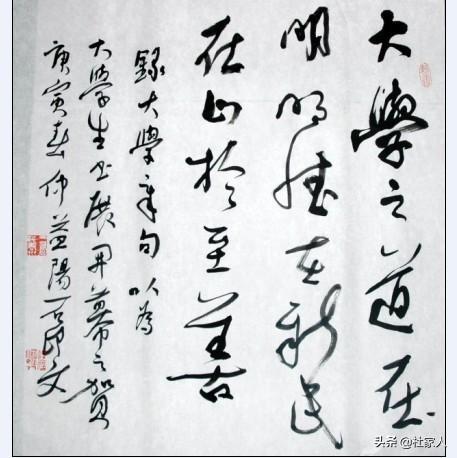 大學之道在
明明德在新民
在止於至善
錄大學章句以為
大學生书展開幕之賀
庚寅春仲益陽
头条 @杜家人